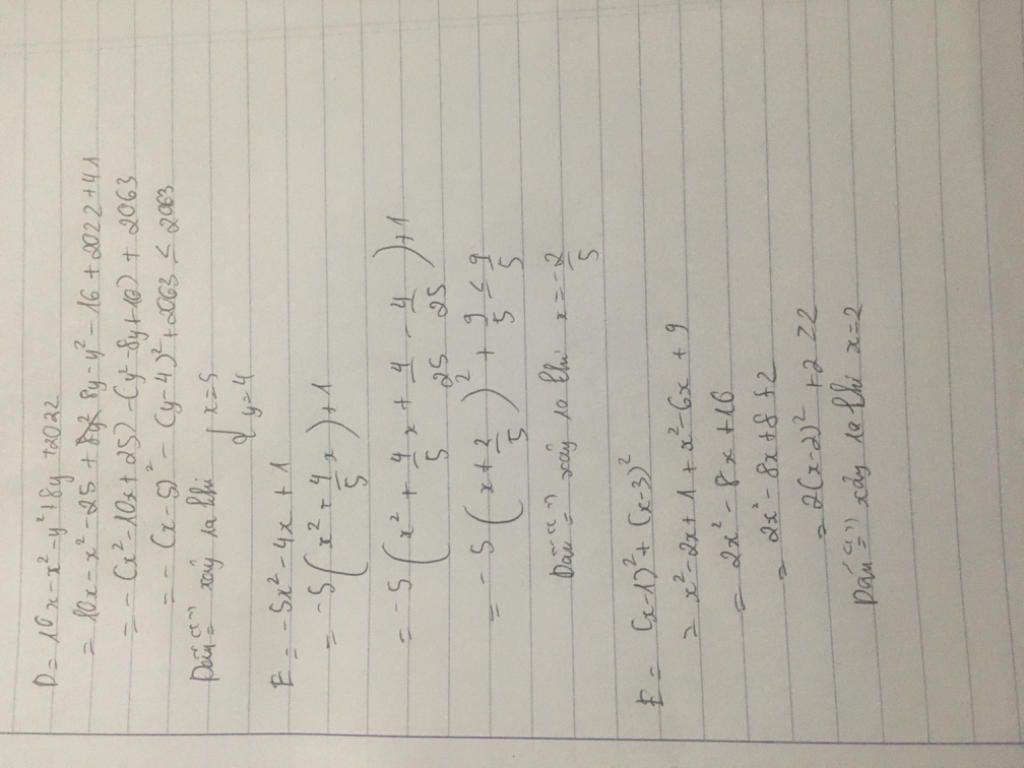 D = 10x - x² - y² + 8y + 2022
= 10x - x² - 25 + 8y - y² - 16 + 2022 + 41
= - (x² - 10x + 25) - (y² - 8y + 16) + 2063
= - (x - 5)² - (y - 4)² + 2063 ≤ 2063
Dấu "=" xảy ra khi { x = 5
{ y = 4
E = -5x² - 4x + 1
= -5(x² + 4/5 x) + 1
= -5(x² + 4/5 x + 4/25 - 4/25) + 1
= -5(x + 2/5)² + 9/5 ≤ 9/5
Dấu "=" xảy ra khi x = -2/5
E = (x - 1)² + (x - 3)²
= x² - 2x + 1 + x² - 6x + 9
= 2x² - 8x + 10
= 2x² - 8x + 8 + 2
= 2(x - 2)² + 2 ≥ 2
Dấu "=" xảy ra khi x = 2